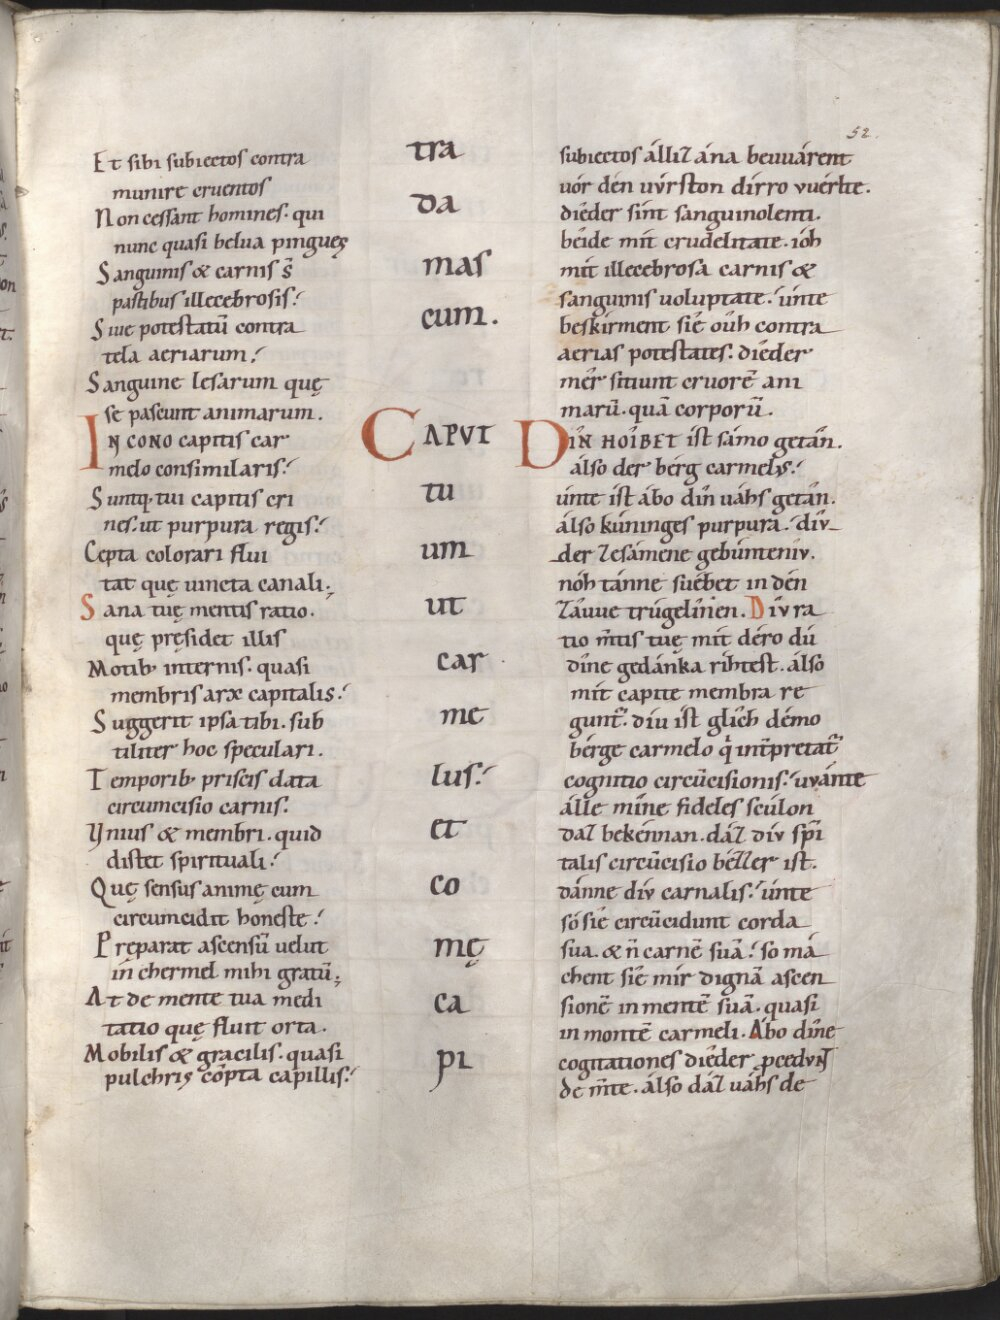 52.
Et sibi subiectos contra
munire cruentos
Non cessant homines· qui
nunc quasi belua pinguęs
Sanguinis & carnis s̄
pastibus illecebrosis:
Siue potestatū contra
tela aeriarum;
Sanguine lesarum quę
se pascunt animarum.
IN CONO capitis car
melo consimilaris:
Suntq; tui capitis cri
nes· ut purpura regis:
Cepta colorari flui
tat quę uincta canali;
Sana tuę mentis ratio.
quę pręsidet illis
Motib; internis· quasi
membris arx capitalis:
Suggerit ipsa tibi· sub
tiliter hoc speculari.
Temporib; priscis data
circumcisio carnis:
Ynius & membri· quid
distet spirituali:
Quę sensus animę cum
circumcidit honeste:
Pręparat ascensū velut
in chermel mihi gratū;
At de mente tua medi
tatio quę fluit orta.
Mobilis & gracilis· quasi
pulchris cōpta capillis:
tra
da
mas
cum.
CAPVT
tu
um
ut
car
me
lus:
et
co
mę
ca
pi
subiectos álliz ána bewárent
uór dén vv́rston dirro vuérlte.
díeder sínt sanguinolenti.
béide mít crudelitate· ióh
mít illecebrosa carnis &
sanguinis uoluptate: únte
beskírment síe óuh contra
aerias potestates· díeder
mér sitiunt cruorē ani
marū· quā corporū.
DIN HOIBET íst sámo getân.
álso der bérg carmelys:
únte íst ábo dín váhs getân.
álso kúninges purpura· dív
der zesámene gebúnteniv.
nóh tánne suébet in dén
záuue trúgelînen. Dív ra
tio m̄tis tuę mít déro dú
díne gedánka ríhtest· álso
mit capite membra re
gunt᷑· diu íst glích démo
bérge carmelo q̇ int̄pretat᷑
cognitio circūcisionis: uvánte
álle míne fideles scúlon
daz bekénnan· dáz dív spi̅
talis circūcisio bézzer íst.
dánne dív carnalis: únte
só síe circūcidunt corda
sua· & n̄ carnē suā: so má
chent síe mír dignā ascen
sionē in mentē suā· quasi
in montē carmeli. Ábo díne
cogitationes díeder ꝓcedvnt
de m̄te· álso dáz váhs de